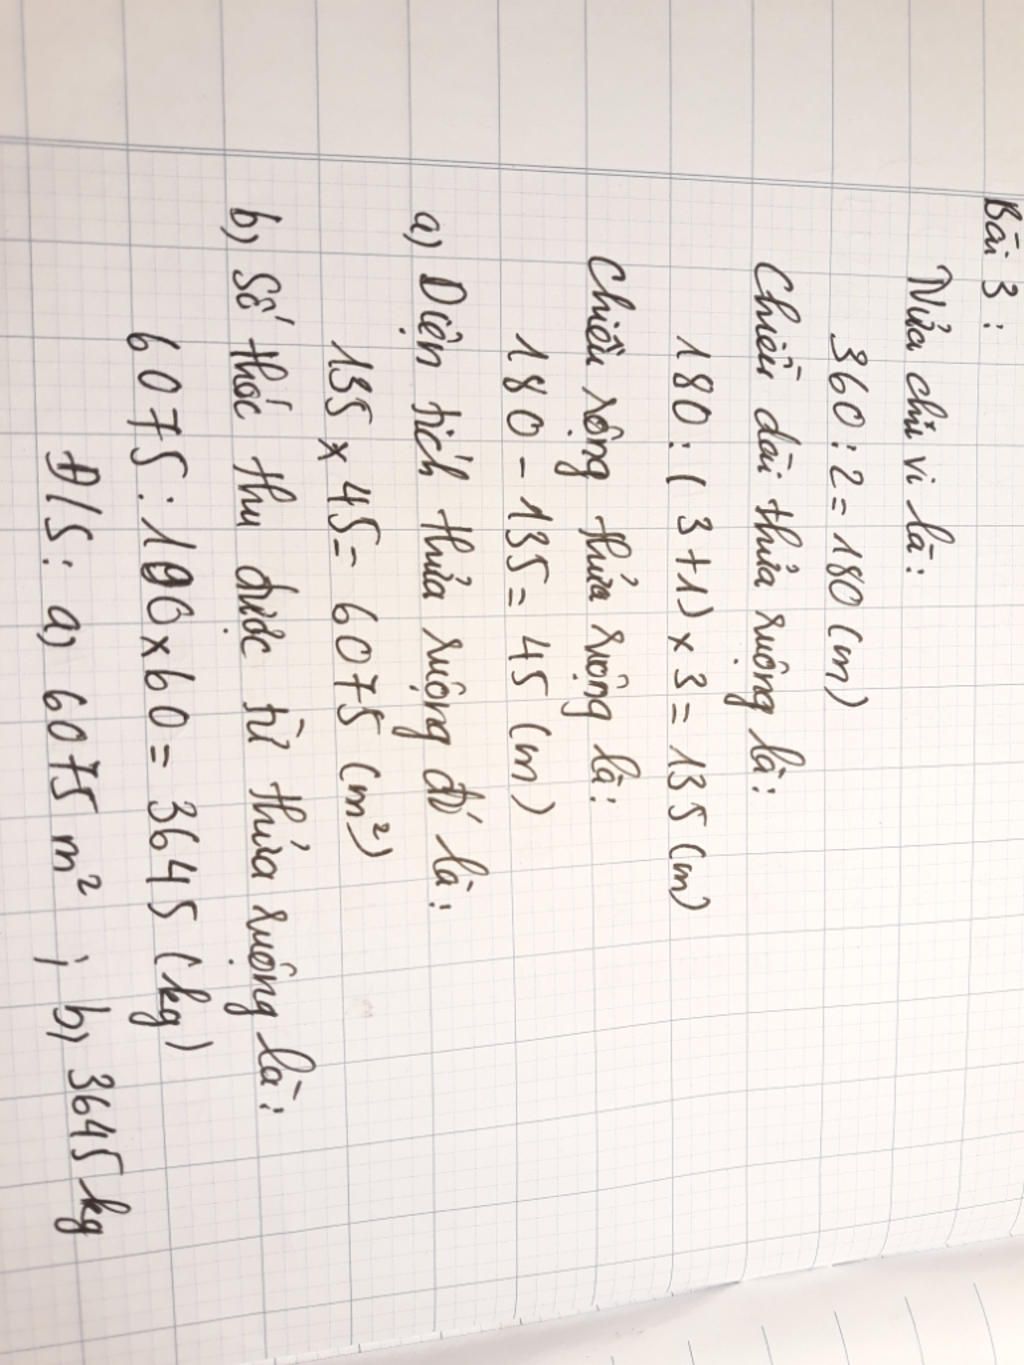 Bài 3:
Nửa chu vi là:
360 : 2 = 180 (m)
Chiều dài thửa ruộng là:
180 : ( 3 + 1) × 3 = 135 (m)
Chiều rộng thửa ruộng là:
180 - 135 = 45 (m)
a) Diện tích thửa ruộng đó là:
135 × 45 = 6075 (m²)
b) Số thóc thu được từ thửa ruộng là:
6075 : 100 × 60 = 3645 (kg)
Đ/S: a) 6075 m² ; b) 3645 kg